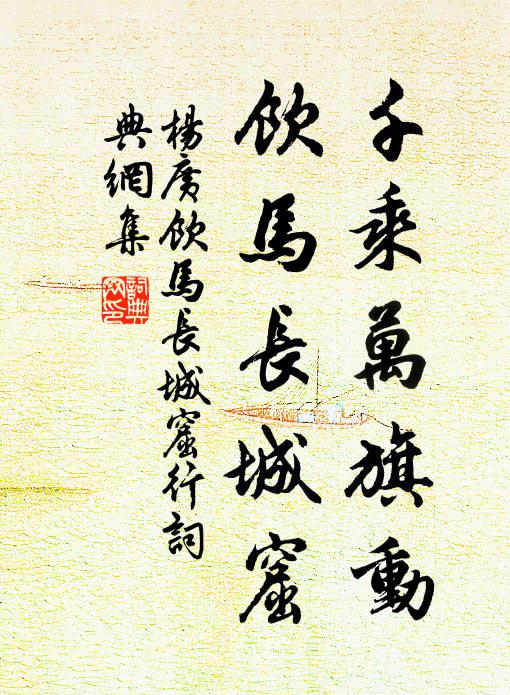 千乘萬旗動
飲馬長城窟
楊廣飲馬長城窟行詞
典網集
詞典
網印